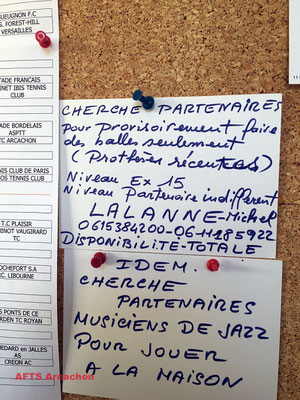 GUEUGNON F.C
S. FOREST-HILL
VERSAILLES
TADE FRANCAIS
INET IBIS TENNIS
CLUB
ADE BORDELAIS
ASPTT
TC ARCACHON
NIS CLUB DE PARIS
OS TENNIS CLUB
T.C PLAISIR
INOT VAUGIRARD
TC
OCHEFORT S.A
C.C. LIBOURNE
PONTS DE CE
RDEN TC ROYAN
EDARD en JALLES
AS
CREON AC
CHERCHE PARTENAIRES
pour provisoirement faire
des balles seulement
(Prothèses récentes)
Niveau Ex 15
Niveau Partenaire indifférent
LALANNE-Michel
0615384200-06-11185922
DISPONIBILITE-TOTALE
IDEM.
CHERCHE
PARTENAIRES
MUSICIENS DE JAZZ
POUR JOUER
A LA MAISON
11
AFTS Arcachon